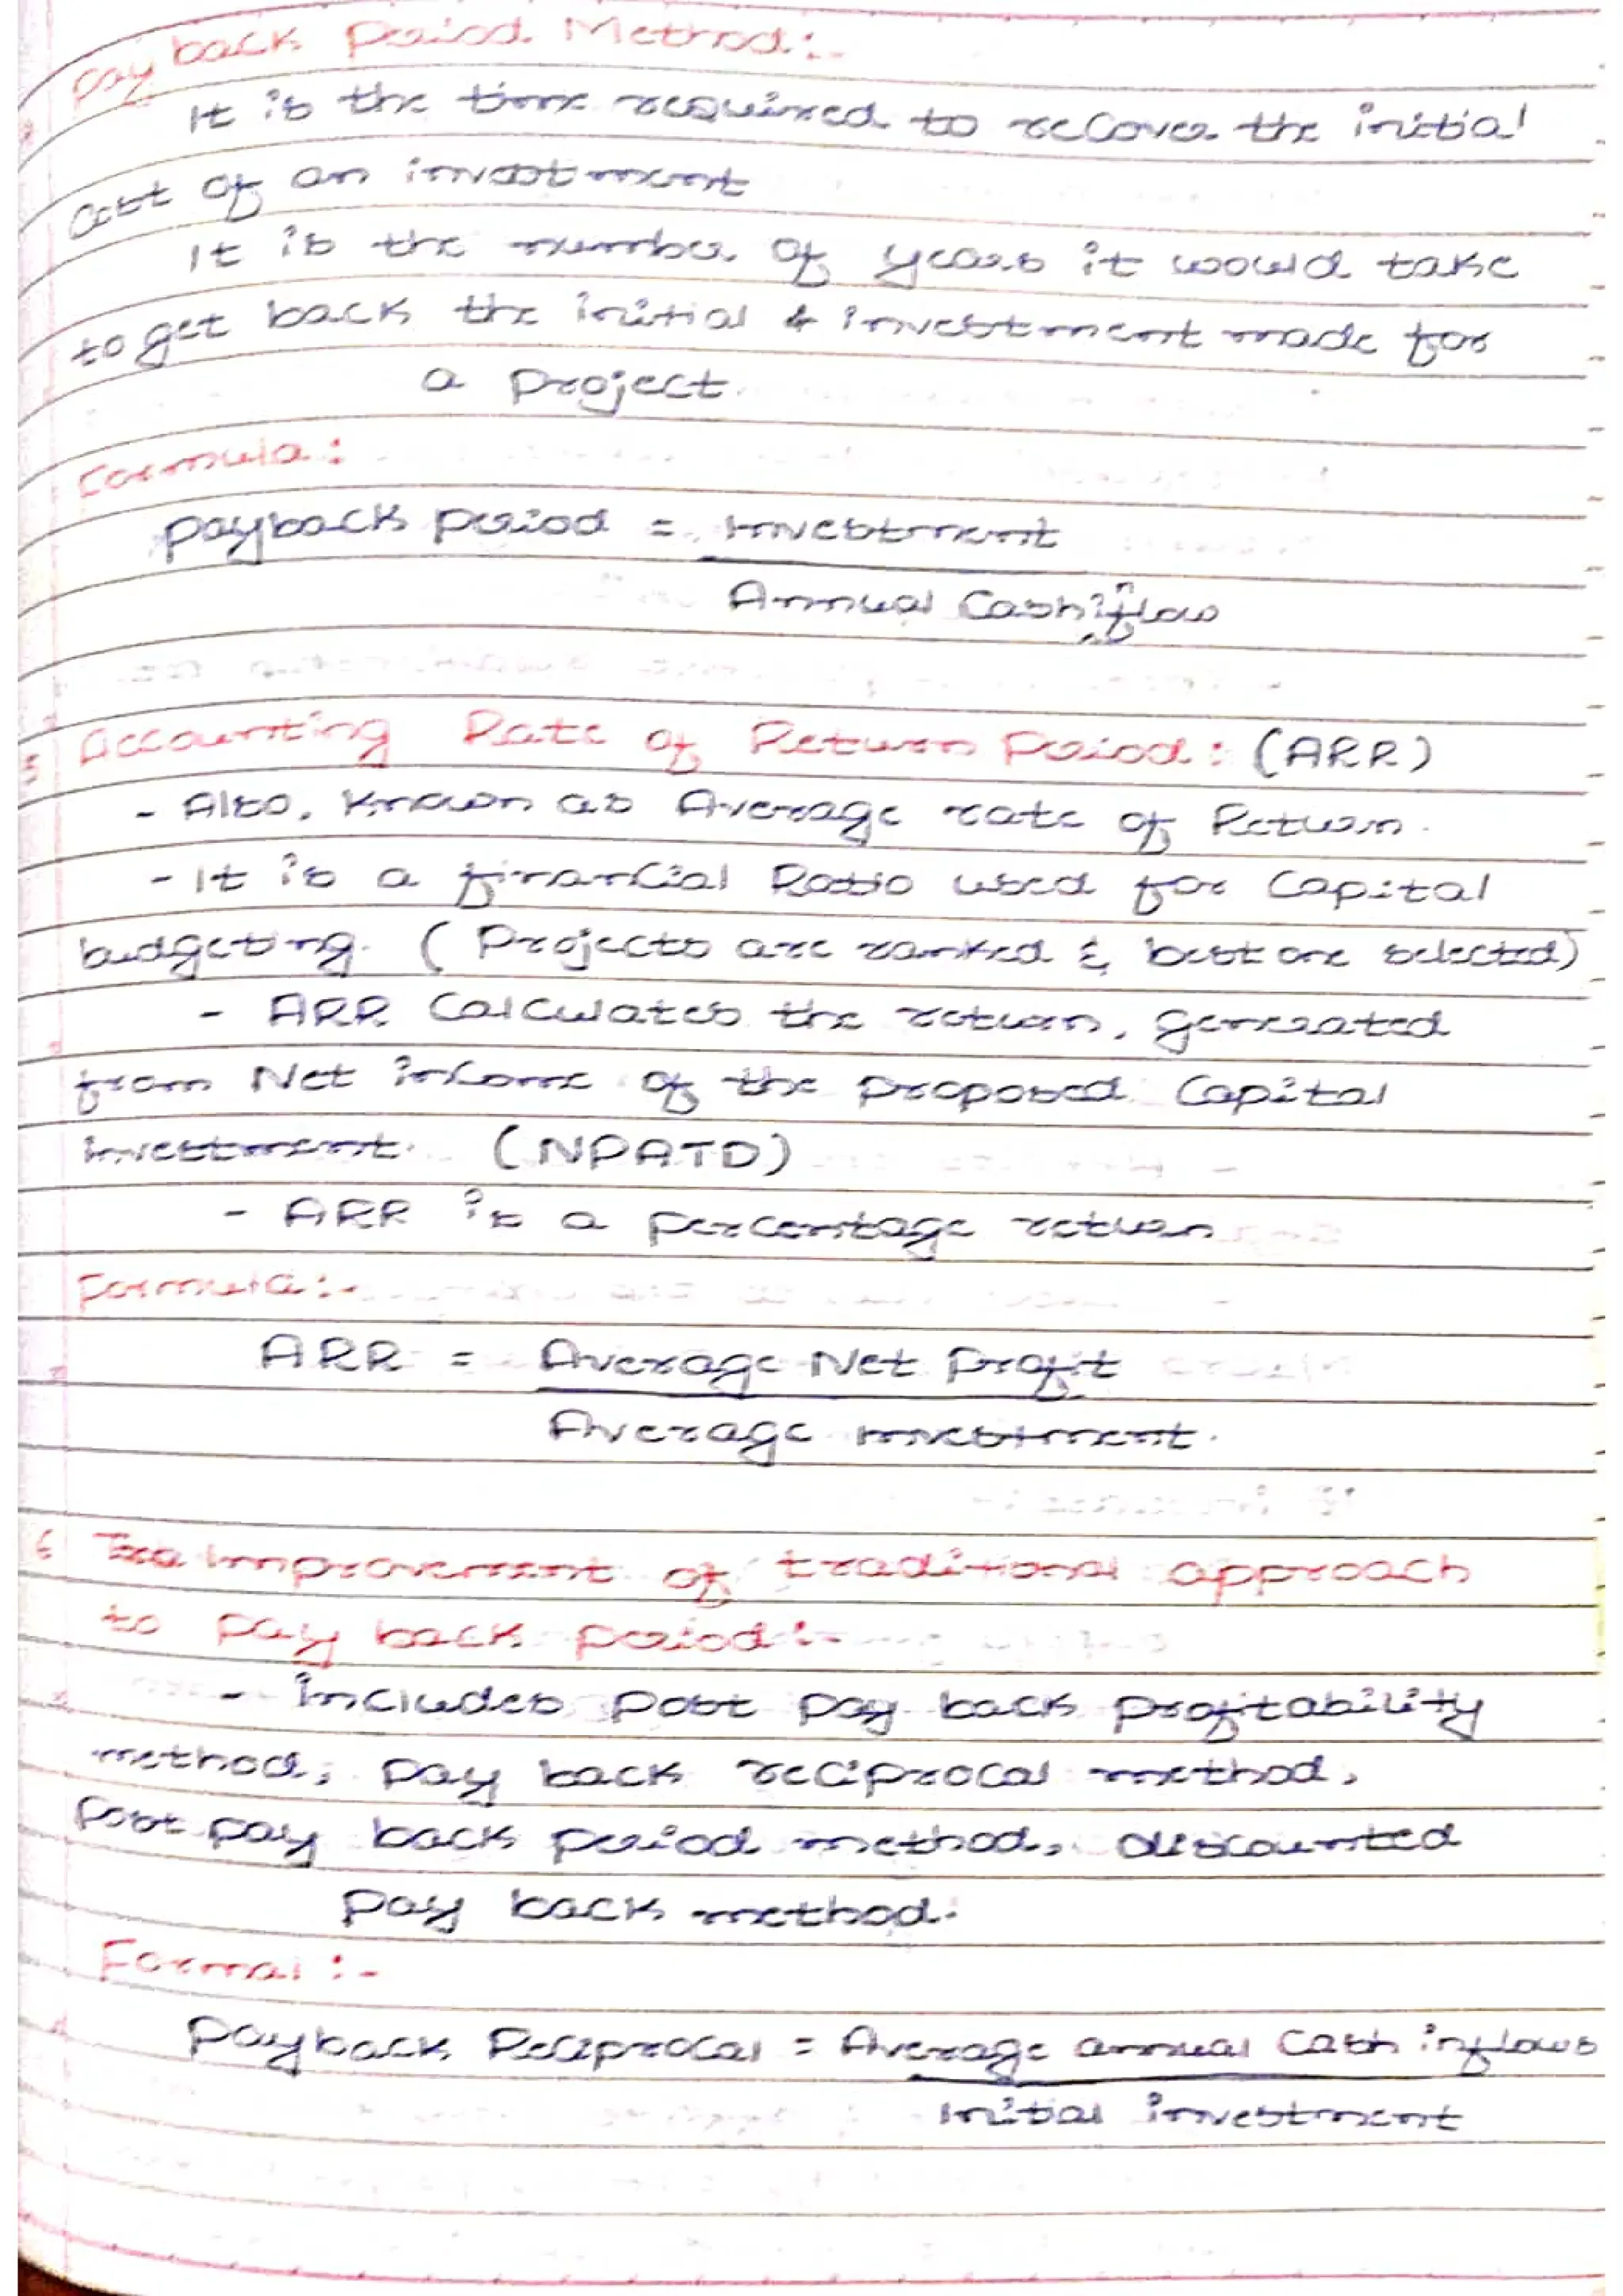 Pay back Period Method:-
It is the time required to recover the initial
Cost of an investment
It is the number of years it would take
to get back the initial & investment made for
a project.
Formula:
Payback Period = Investment
Annual Cash inflow
5 Accounting Rate of Return Period: (ARR)
- Also, Known as Average rate of Return.
- It is a financial Ratio used for Capital
budgeting. (Projects are ranked & best one selected)
- ARR Calculates the return, generated
from Net income of the proposed Capital
investment. (NPATD)
- ARR is a percentage return
Formula:-
ARR = Average Net Profit
Average investment.
6 Improvement of traditional approach
to pay back period:-
- Includes post pay back profitability
method, pay back reciprocal method,
Post pay back period method, discounted
pay back method.
Formal:-
Payback Reciprocal = Average annual Cash inflows
Initial investment